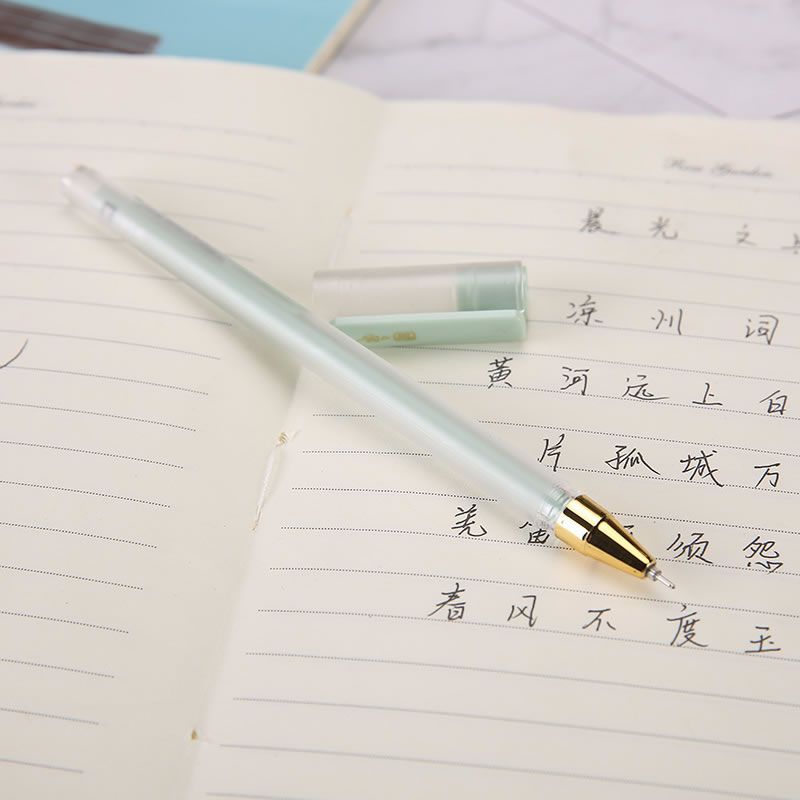 Rose Garden
晨光 文
凉州词
黄河远上白
片孤城万
羌笛 须怨
春风不度玉